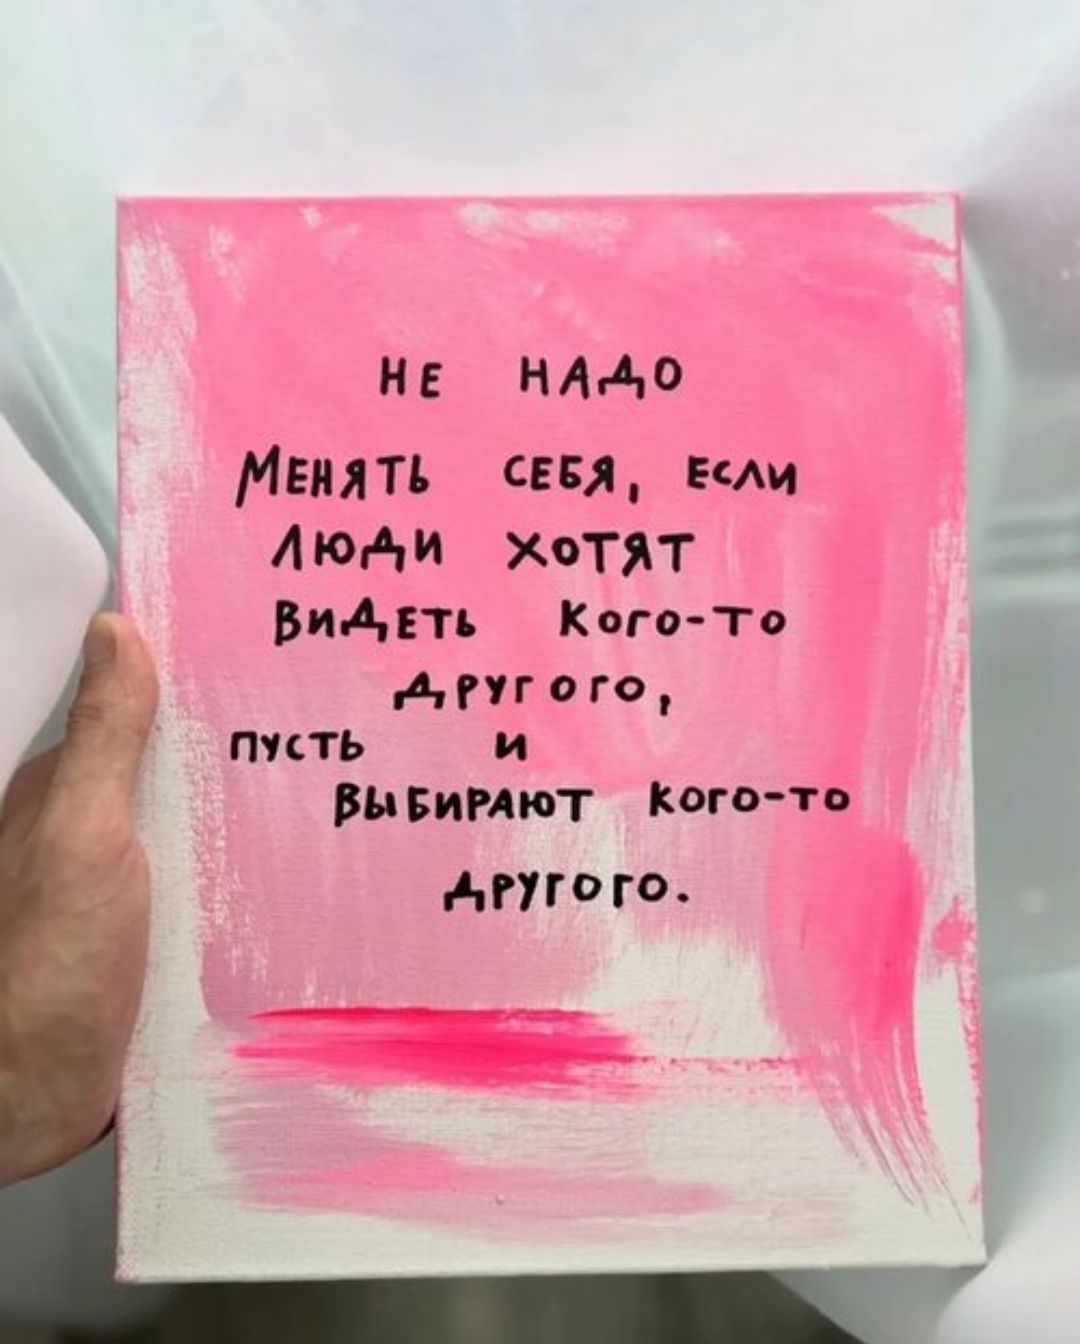 НЕ НАДО
МЕНЯТЬ СЕБЯ, ЕСЛИ
ЛЮДИ ХОТЯТ
ВИДЕТЬ КОГО-ТО
ДРУГОГО,
ПУСТЬ И
ВЫБИРАЮТ КОГО-ТО
ДРУГОГО.